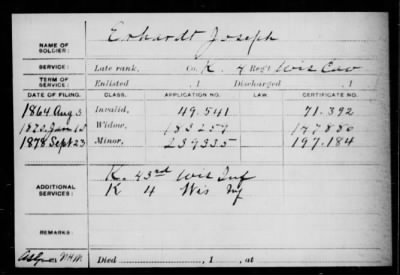 NAME OF SOLDIER: Erhardt Joseph
SERVICE: Late rank, Co. K. 4 Reg't Wis Cav
TERM OF SERVICE: Enlisted , 1 Discharged , 1
DATE OF FILING. CLASS. APPLICATION NO. LAW. CERTIFICATE NO.
1864 Aug 3 Invalid, 49.541 71.392
Widow, 183257
1878 Sept 23 Minor, 239335 197.184
ADDITIONAL SERVICES: K. 43rd Wis Inf
K 4 Wis Inf
REMARKS:
Died , 1 , at